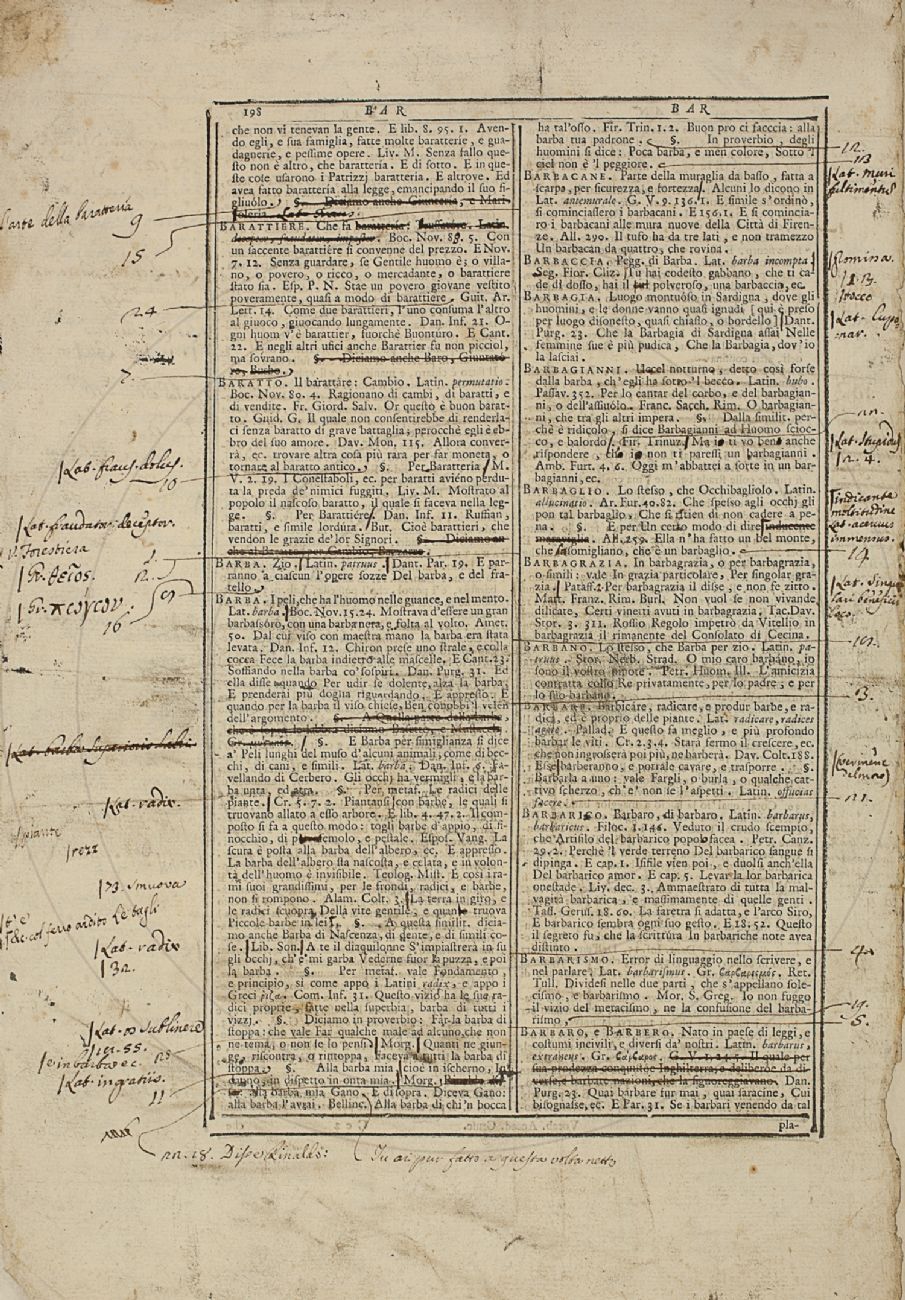 198 BAR BAR
che non vi tenevan la gente. E lib. 8. 95. 1. Aven-
do egli, e sua famiglia, fatte molte baratterie, e gua-
dagnerie, e pessime opere. Liv. M. Senza fallo que-
sto non è altro, che baratteria. E di sotto. E in que-
ste cose usarono i Patrizzj baratteria. E altrove. Ed
avea fatto baratteria alla legge, emancipando il suo fi-
gliuólo. §. Diciamo anche Giunteria, e Mari-
oleria. Lat. fraus.
BARATTIERE. Che fa baratteria: Truffatore. Latin.
Boc. Nov. 89. 5. Con
un saccente barattiére si convenne del prezzo. E Nov.
7. 12. Senza guardare, se Gentile huomo è; o villa-
no, o povero, o ricco, o mercadante, o barattiere
stato sia. Esp. P. N. Stae un povero giovane vestito
poveramente, quasi a modo di barattiere. Guit. Ar.
Lett. 14. Come due barattieri, l'uno consuma l'altro
al giuoco, giuocando lungamente. Dan. Inf. 21. O-
gni huom v'è barattier, fuorchè Buonturo. E Cant.
22. E negli altri ufici anche Barattier fu non picciol,
ma sovrano. §. Diciamo anche Baro, Giuntato-
re,
BARATTO. Il baráttare: Cambio. Latin. permutatio.
Boc. Nov. 80. 4. Ragionano di cambi, di baratti, e
di vendite. Fr. Giord. Salv. Or questo è buon barat-
to. Guid. G. Il quale non consentirebbe di renderla-
ci senza baratto di grave battaglia; perocchè egli è eb-
bro del suo amore. Dav. Mon. 115. Allora conver-
rà, ec. trovare altra cosa più rara per far moneta, o
tornare al baratto antico. §. Per Baratteria. M.
V. 2. 19. I Conestaboli, ec. per baratti avièno perdu-
ta la preda de'nimici fuggiti, Liv. M. Mostrato al
popolo il nascoso baratto, il quale si faceva nella leg-
ge. §. Per Barattiére. Dan. Inf. 11. Ruffian,
baratti, e simile lordúra. But. Cioè barattieri, che
vendon le grazie de'lor Signori. §. Diciamo an-
che al Baratto per Cambio, Barazzo.
BARBA. Zio. Latin. patruus. Dant. Par. 19. E par-
ranno a ciascun l'opere sozze Del barba, e del fra-
tello.
BARBA. I peli, che ha l'huomo nelle guance, e nel mento.
Lat. barba. Boc. Nov. 15. 24. Mostrava d'essere un gran
barbassóro, con una barba nera, e folta al volto. Amet.
50. Dal cui viso con maestra mano la barba era stata
levata. Dan. Inf. 12. Chiron prese uno strale, e colla
cocca Fece la barba indietro alle mascelle. E Cant. 23.
Soffiando nella barba co'sospiri. Dan. Purg. 31. Ed
ella disse quando Per udir se dolente, alza la barba,
E prenderai più doglia riguardando. E appresso. E
quando per la barba il viso chiese, Ben conobbi 'l velen
dell'argomento. §. A Quella parte della barba,
che è sopra le labbra diciamo Basette, e Mostacchi.
§. E Barba per simiglianza si dice
a' Peli lunghi del muso d'alcuni animali, come di bec-
chi, di cani, e simili. Lat. barba. Dan. Inf. 6. Fa-
vellando di Cerbero. Gli occhj ha vermigli, e la bar-
ba unta, ed atra. §. Per metaf. Le radici delle
piante. Cr. 5. 7. 2. Piantansi con barbe, le quali si
truovano allato a esso arbore. E lib. 4. 47. 2. Il com-
posto si fa a questo modo: togli barbe d'appio, di fi-
nocchio, di petrosemolo, e pestale. Espos. Vang. La
scura è posta alla barba dell'albero, ec. E appresso.
La barba dell'albero sta nascosta, e celata, e in volon-
tà dell'huomo è invisibile. Teolog. Mist. E così i ra-
mi suoi grandissimi, per le frondi, radici, e barbe,
non si rompono. Alam. Colt. 3. La terra in giro, e
le radici scuopra Della vite gentile, e quante truova
Piccole barbe in lei. §. A questa similit. dicia-
mo anche Barba di Nascenza, di dente, e di simili co-
se. Lib. Son. A te il diaquilonne S'impiastrerà in su
gli occhj, ch'e' mi garba Vederne suor la puzza, e poi
la barba. §. Per metaf. vale Fondamento,
e principio, sì come appo i Latini radix, e appo i
Greci ρίζα. Com. Inf. 31. Questo vizio ha le sue ra-
dici proprie, fitte nella superbia, barba di tutti i
vizzj. §. Diciamo in proverbio: Far la barba di
stoppa: che vale Far qualche male ad alcuno, che non
ne tema, o non se lo pensi. Morg. Quanti ne giun-
ge, riscontra, o rintoppa, Faceva a tutti la barba di
stoppa. §. Alla barba mia, cioè in ischerno, in
danno, in dispetto in onta mia. Morg.
alla barba mia Gano. E di sopra. Diceva Gano:
alla barba l'avrai. Bellinc. Alla barba di chi'n bocca
ha tal'osso. Fir. Trin. 1. 2. Buon pro ci facccia: alla
barba tua padrone. §. In proverbio, degli
huomini si dice: Poca barba, e men colore, Sotto 'l
ciel non è 'l peggiore.
BARBACANE. Parte della muraglia da basso, fatta a
scarpa, per sicurezza, e fortezza. Alcuni lo dicono in
Lat. antemurale. G. V. 9. 136. 1. E simile s'ordinò,
si cominciassero i barbacani. E 156. 1. E si comincia-
ro i barbacani alle mura nuove della Città di Firen-
ze. All. 290. Il tufo ha da tre lati, e non tramezzo
Un barbacan da quattro, che rovina.
BARBACCIA. Pegg. di Barba. Lat. barba incompta.
Seg. Fior. Cliz. Tu hai codesto gabbano, che ti ca-
de di dosso, hai il polveroso, una barbaccia, ec.
BARBAGIA. Luogo montuóso in Sardigna, dove gli
huomini, e le donne vanno quasi ignudi [qui è preso
per luogo disonesto, quasi chiasso, o bordello] Dant.
Purg. 23. Che la Barbagia di Sardigna assai Nelle
femmine sue è più pudica, Che la Barbagia, dov'io
la lasciai.
BARBAGIANNI. Uccel notturno, detto così forse
dalla barba, ch'egli ha sotto 'l becco. Latin. bubo.
Passav. 352. Per lo cantar del corbo, e del barbagian-
ni, o dell'assiuólo. Franc. Sacch. Rim. O barbagian-
ni, che tra gli altri impera. §. Dalla similit. per-
chè è ridicolo, si dice Barbagianni ad Huomo scioc-
co, e balordo. Fir. Trinuz. Ma io ti vo bene anche
rispondere, che io non ti paressi un barbagianni.
Amb. Furt. 4. 6. Oggi m'abbattei a sorte in un bar-
bagianni, ec.
BARBAGLIO. Lo stesso, che Occhibagliolo. Latin.
allucinatio. Ar. Fur. 10. 82. Che spesso agli occhj gli
pon tal barbaglio, Che si ritien di non cadere a pe-
na. §. E per Un certo modo di dire inducente
maraviglia. All. 259. Ella n'ha fatto un bel monte,
che somigliano, che è un barbaglio.
BARBAGRAZIA. In barbagrazia, o per barbagrazia,
o simili: vale In grazia particolare, Per singolar gra-
zia. Pataff. Per barbagrazia il disse, e non fe zitto.
Matt. Franz. Rim. Burl. Non vuol se non vivande
dilicate, Certi vinetti avuti in barbagrazia, Tac. Dav.
Stor. 3. 311. Rossio Regolo impetrò da Vitellio in
barbagrazia il rimanente del Consolato di Cecina.
BARBANO. Lo stesso, che Barba per zio. Latin. pa-
truus. Stor. Nerb. Strad. O mio caro barbano, io
sono il vostro nipote. Petr. Huom. Ill. L'amicizia
contratta collo Re privatamente, per lo padre, e per
lo suo barbano.
BARBARE. Barbicáre, radicare, e produr barbe, e ra-
dici, ed è proprio delle piante. Lat. radicare, radices
agere. Pallad. E questo fa meglio, e più profondo
barbar le viti. Cr. 2. 3. 4. Starà fermo il crescere, ec.
che non ingosserà poi più, ne barberà. Dav. Colt. 188.
E se barberanno, e potrale cavare, e trasporre. §.
Barbarla a uno: vale Fargli, o burla, o qualche cat-
tivo scherzo, ch'e' non se l'aspetti. Latin. offucias
facere.
BARBARICO. Barbaro, di barbaro. Latin. barbarus,
barbaricus. Filoc. 1. 146. Veduto il crudo scempio,
che Artusilo del barbarico popolo facea. Petr. Canz.
29. 2. Perchè 'l verde terreno Del barbarico sangue si
dipinga. E cap. 1. Isifile vien poi, e duolsi anch'ella
Del barbarico amor. E cap. 5. Levar la lor barbarica
onestade. Liv. dec. 3. Ammaestrato di tutta la mal-
vagità barbarica, e massimamente di quelle genti.
Tass. Gerus. 18. 60. La faretra si adatta, e l'arco Siro,
E barbarico sembra ogni suo gesto. E 18. 52. Questo
il segreto fu, che la scrittúra In barbariche note avea
distinto.
BARBARISMO. Error di linguaggio nello scrivere, e
nel parlare. Lat. barbarismus. Gr. βαρβαρισμός. Ret.
Tull. Dividesi nelle due parti, che s'appellano sole-
cismo, e barbarismo. Mor. S. Greg. Io non fuggo
il vizio del metacismo, ne la confusione del barba-
rismo.
BARBARO, e BARBERO. Nato in paese di leggi, e
costumi incivili, e diversi da' nostri. Latin. barbarus,
extraneus. Gr. βάρβαρος. G. V. 1. 24. 5. Il quale per
sua prodezza conquistòe Inghilterra, e deliberòe da di-
verse, e barbare nazioni, che la signoreggiavano. Dan.
Purg. 23. Quai barbare fur mai, quai saracine, Cui
bisognasse, ec. E Par. 31. Se i barbari venendo da tal
pla-
l'arte della Baratteria
9
15
24
7
Lat. fraus. dolus.
10
Lat. fraudator. deceptor.
V. Forestiera
1.
12.
Gr. θεῖος.
9
16
Lat. barba superioris labii
Lat. radix.
piante
73. 5 nuova
e col ferro ardito le tagli
Lat. radix
32.
Lat. os sublinere
28
e in barba ec.
Lat. ingratiis.
11
12.
13
Lat. muri
1. 3.
Lat. Lupa-
nar.
22.
Lat. stupidus
2. 4.
indicante
moltitudine
Lat. acervus
immensus.
14
Lat. singu-
lari beneficio
19.
13.
21.
4.
19.
5.
22. 18. Disse Rinaldo: Tu ai pur fatto a questa volta netto